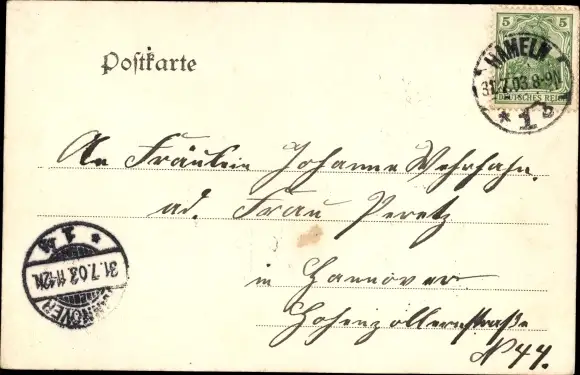 Postkarte
5
DEUTSCHES REICH
HAMELN
31.7.03.8-9N
* 1 b
An Fräulein Johanne Wehrhahn.
ad. Frau Peretz
in Hannover.
Hohenzollernstraße
No 44.
HANNOVER
31.7.03.11-12N
* 1